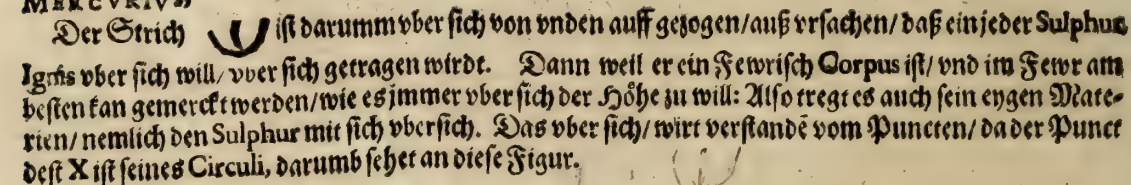 MERCVRIVS
Der Strich ist darumm vber sich von vnden auff gezogen/auß vrsachen/daß ein jeder Sulphur
Ignis vber sich will/ vber sich getragen wirdt. Dann weil er ein Fewrisch Corpus ist/ vnd im Fewr am
besten kan gemerckt werden/wie es jmmer vber sich der Höhe zu will: Also tregt es auch sein eygen Mate-
rien/ nemlich den Sulphur mit sich vbersich. Das vber sich/ wirt verstandē vom Puncten/ da der Punct
deß X ist seines Circuli, darumb sehet an diese Figur.